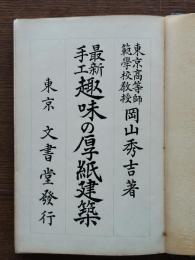 東京高等師範學校教授
岡山秀吉著
最新手工
趣味の厚紙建築
東京 文書堂發行